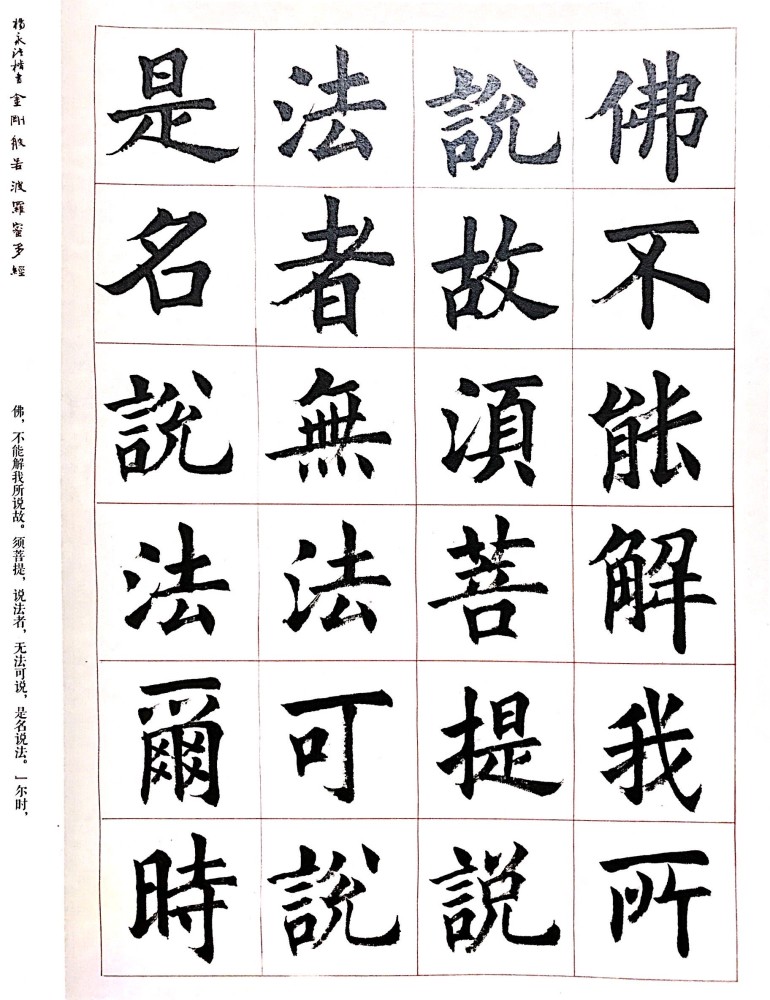 佛不能解我所
說故須菩提說
法者無法可說
是名說法爾時
楊永法楷書金剛般若波羅蜜多經
佛，不能解我所说故。须菩提，说法者，无法可说，是名说法。」尔时，